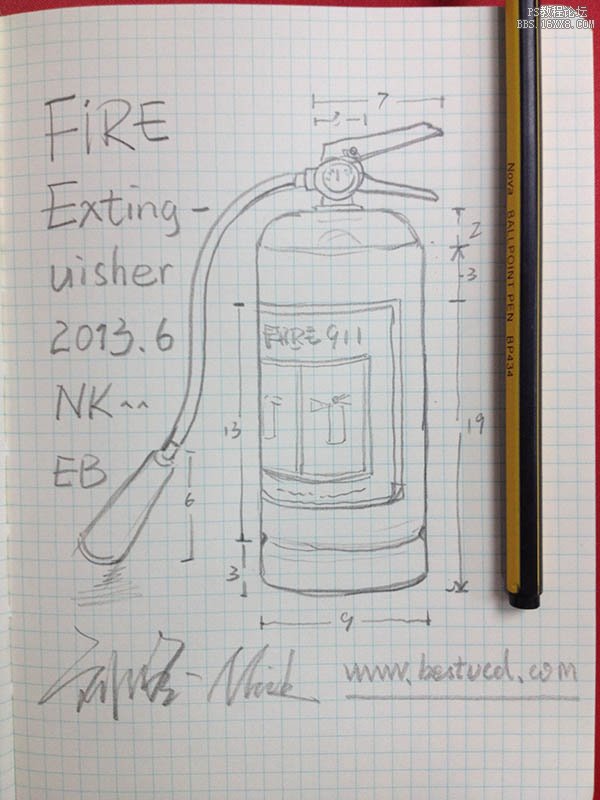 PS教程论坛
BBS.16XX8.COM
FiRE
Exting-
uisher
2013.6
NK~~
EB
7
3
2
3
19
13
6
3
9
FIRE 911
Nova BALLPOINT PEN BP434
Mick
www.bestucd.com